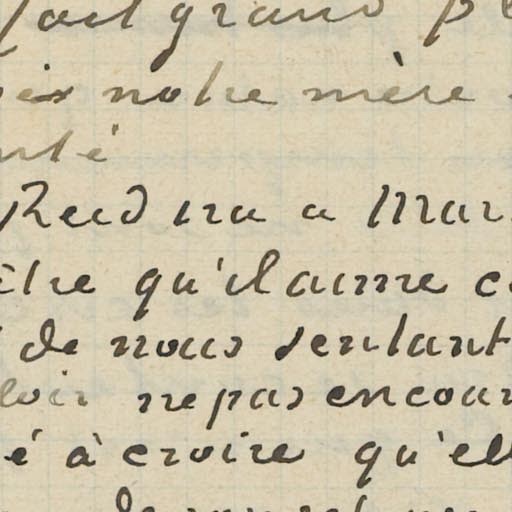 fait grand pl
notre mère
nté
Reed ira a Mar
être qu'il aime c
de nous sentant
loir ne pas encour
é à croire qu'ell